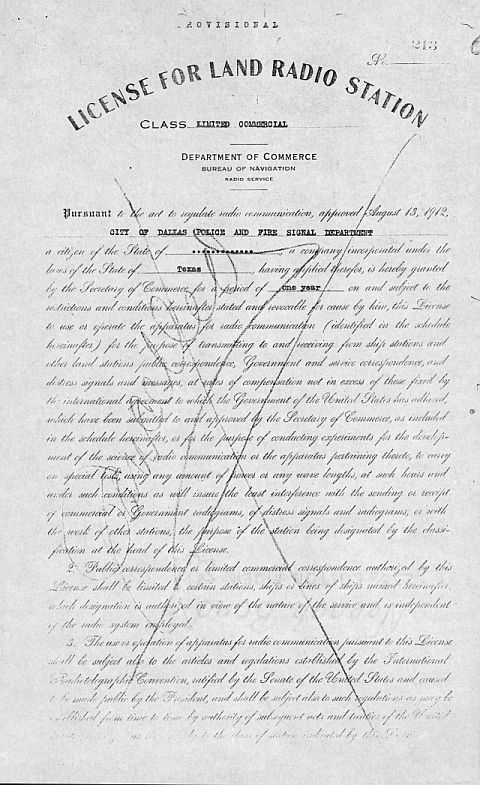 PROVISIONAL
No. 213
LICENSE FOR LAND RADIO STATION
CLASS LIMITED COMMERCIAL
DEPARTMENT OF COMMERCE
BUREAU OF NAVIGATION
RADIO SERVICE
Pursuant to the act to regulate radio communication, approved August 13, 1912,
CITY OF DALLAS POLICE AND FIRE SIGNAL DEPARTMENT
a citizen of the State of , a company incorporated under the
laws of the State of Texas , having applied therefor, is hereby granted
by the Secretary of Commerce for a period of one year on and subject to the
restrictions and conditions hereinafter stated and revocable for cause by him, this License
to use or operate the apparatus for radio communication (identified in the schedule
hereinafter) for the purpose of transmitting to and receiving from ship stations and
other land stations public correspondence, Government and service correspondence, and
distress signals and messages, at rates of compensation not in excess of those fixed by
the international agreement to which the Government of the United States has adhered,
which have been submitted to and approved by the Secretary of Commerce, as included
in the schedule hereinafter, or for the purpose of conducting experiments for the develop-
ment of the science of radio communication or the apparatus pertaining thereto, to carry
on special tests, using any amount of power or any wave lengths, at such hours and
under such conditions as will insure the least interference with the sending or receipt
of commercial or Government radiograms, of distress signals and radiograms, or with
the work of other stations, the purpose of the station being designated by the classi-
fication at the head of this License.
2. Public correspondence or limited commercial correspondence authorized by this
License shall be limited to certain stations, ships or lines of ships named hereinafter,
which designation is authorized in view of the nature of the service and is independent
of the radio system employed.
3. The use or operation of apparatus for radio communication pursuant to this License
shall be subject also to the articles and regulations established by the International
Radiotelegraphic Convention, ratified by the Senate of the United States and caused
to be made public by the President, and shall be subject also to such regulations as may be
established from time to time by authority of subsequent acts and treaties of the United
as to the class of station indicated by this